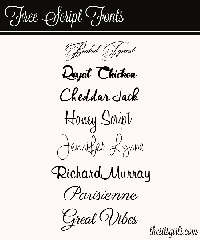 Free Script Fonts
Royal Chicken
Cheddar Jack
Honey Script
Jennifer Lynne
Richard Murray
Parisienne
Great Vibes